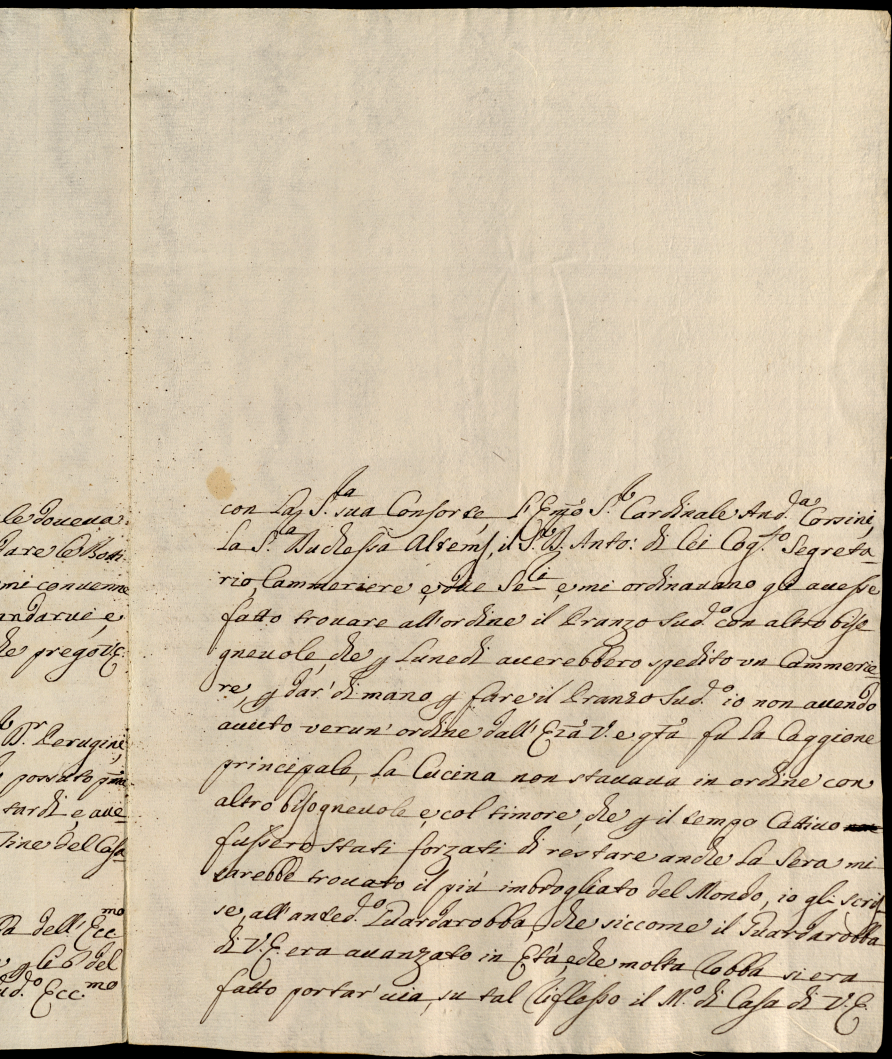 le doveva
dare le Bott
mi convenne
andarvi, e
he prego V.E.
Dr. Perugini,
possuto pma
tardi, e ave-
fine del Casa
dell'Ecc.mo
gli 6 del
sud.o Ecc.mo
con La S.ra sua Consorte, L'Emo S.r Cardinale And.a Corsini,
La S.ra Duchessa Altemps, il S.r D. Anto: di lei Cog.to Segreta-
rio, Cammeriere, e due Se.ri e mi ordinavano gli avesse
fatto trovare all'ordine il Pranzo sud.o con altro biso
gnevole, che p Lunedì averebbero spedito un Cammerie-
re, p dar' di mano p fare il Pranzo sud.o io non avendo
avuto verun' ordine dall'Eza V. e qta fu la Caggione
principale, La Cucina non stavava in ordine con
altro bisognevole, e col timore, che p il tempo Cattivo non
fussero stati forzati di restare anche la sera mi
sarebbe trovato il più imbrogliato del Mondo, io gli scris-
se, all'anted.o Guardarobba, che siccome il Guardarobba
di V.E. era avanzato in Età, e che molta Robba si era
fatto portar' via, su tal riflesso il M.o di Casa di V.E.